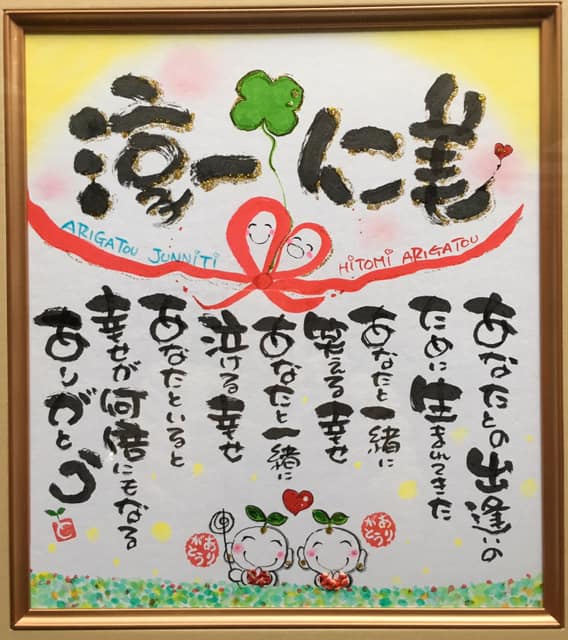 淳一 仁美
ARIGATOU JUNNiTi
HiTOMi ARIGATOU
あなたとの出逢いの
ために生まれてきた
あなたと一緒に
笑える幸せ
あなたと一緒に
泣ける幸せ
あなたといると
幸せが何倍にもなる
ありがとう
ありがとう
ありがとう